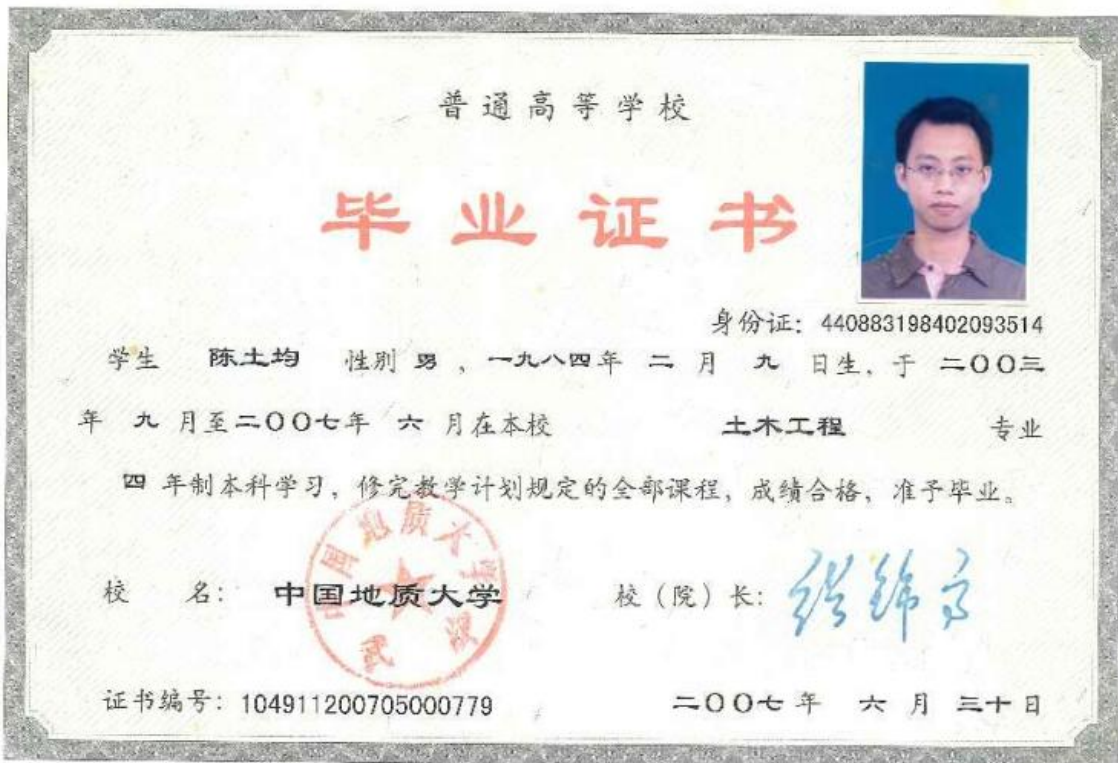 普通高等学校
毕业证书
身份证：440883198402093514
学生 陈土均 性别 男，一九八四年 二 月 九 日生，于 二〇〇三
年 九 月至二〇〇七年 六 月在本校 土木工程 专业
四 年制本科学习，修完教学计划规定的全部课程，成绩合格，准予毕业。
中国地质大学
武汉
校 名：中国地质大学 校（院）长：张锦高
证书编号：104911200705000779 二〇〇七年 六 月 三十日